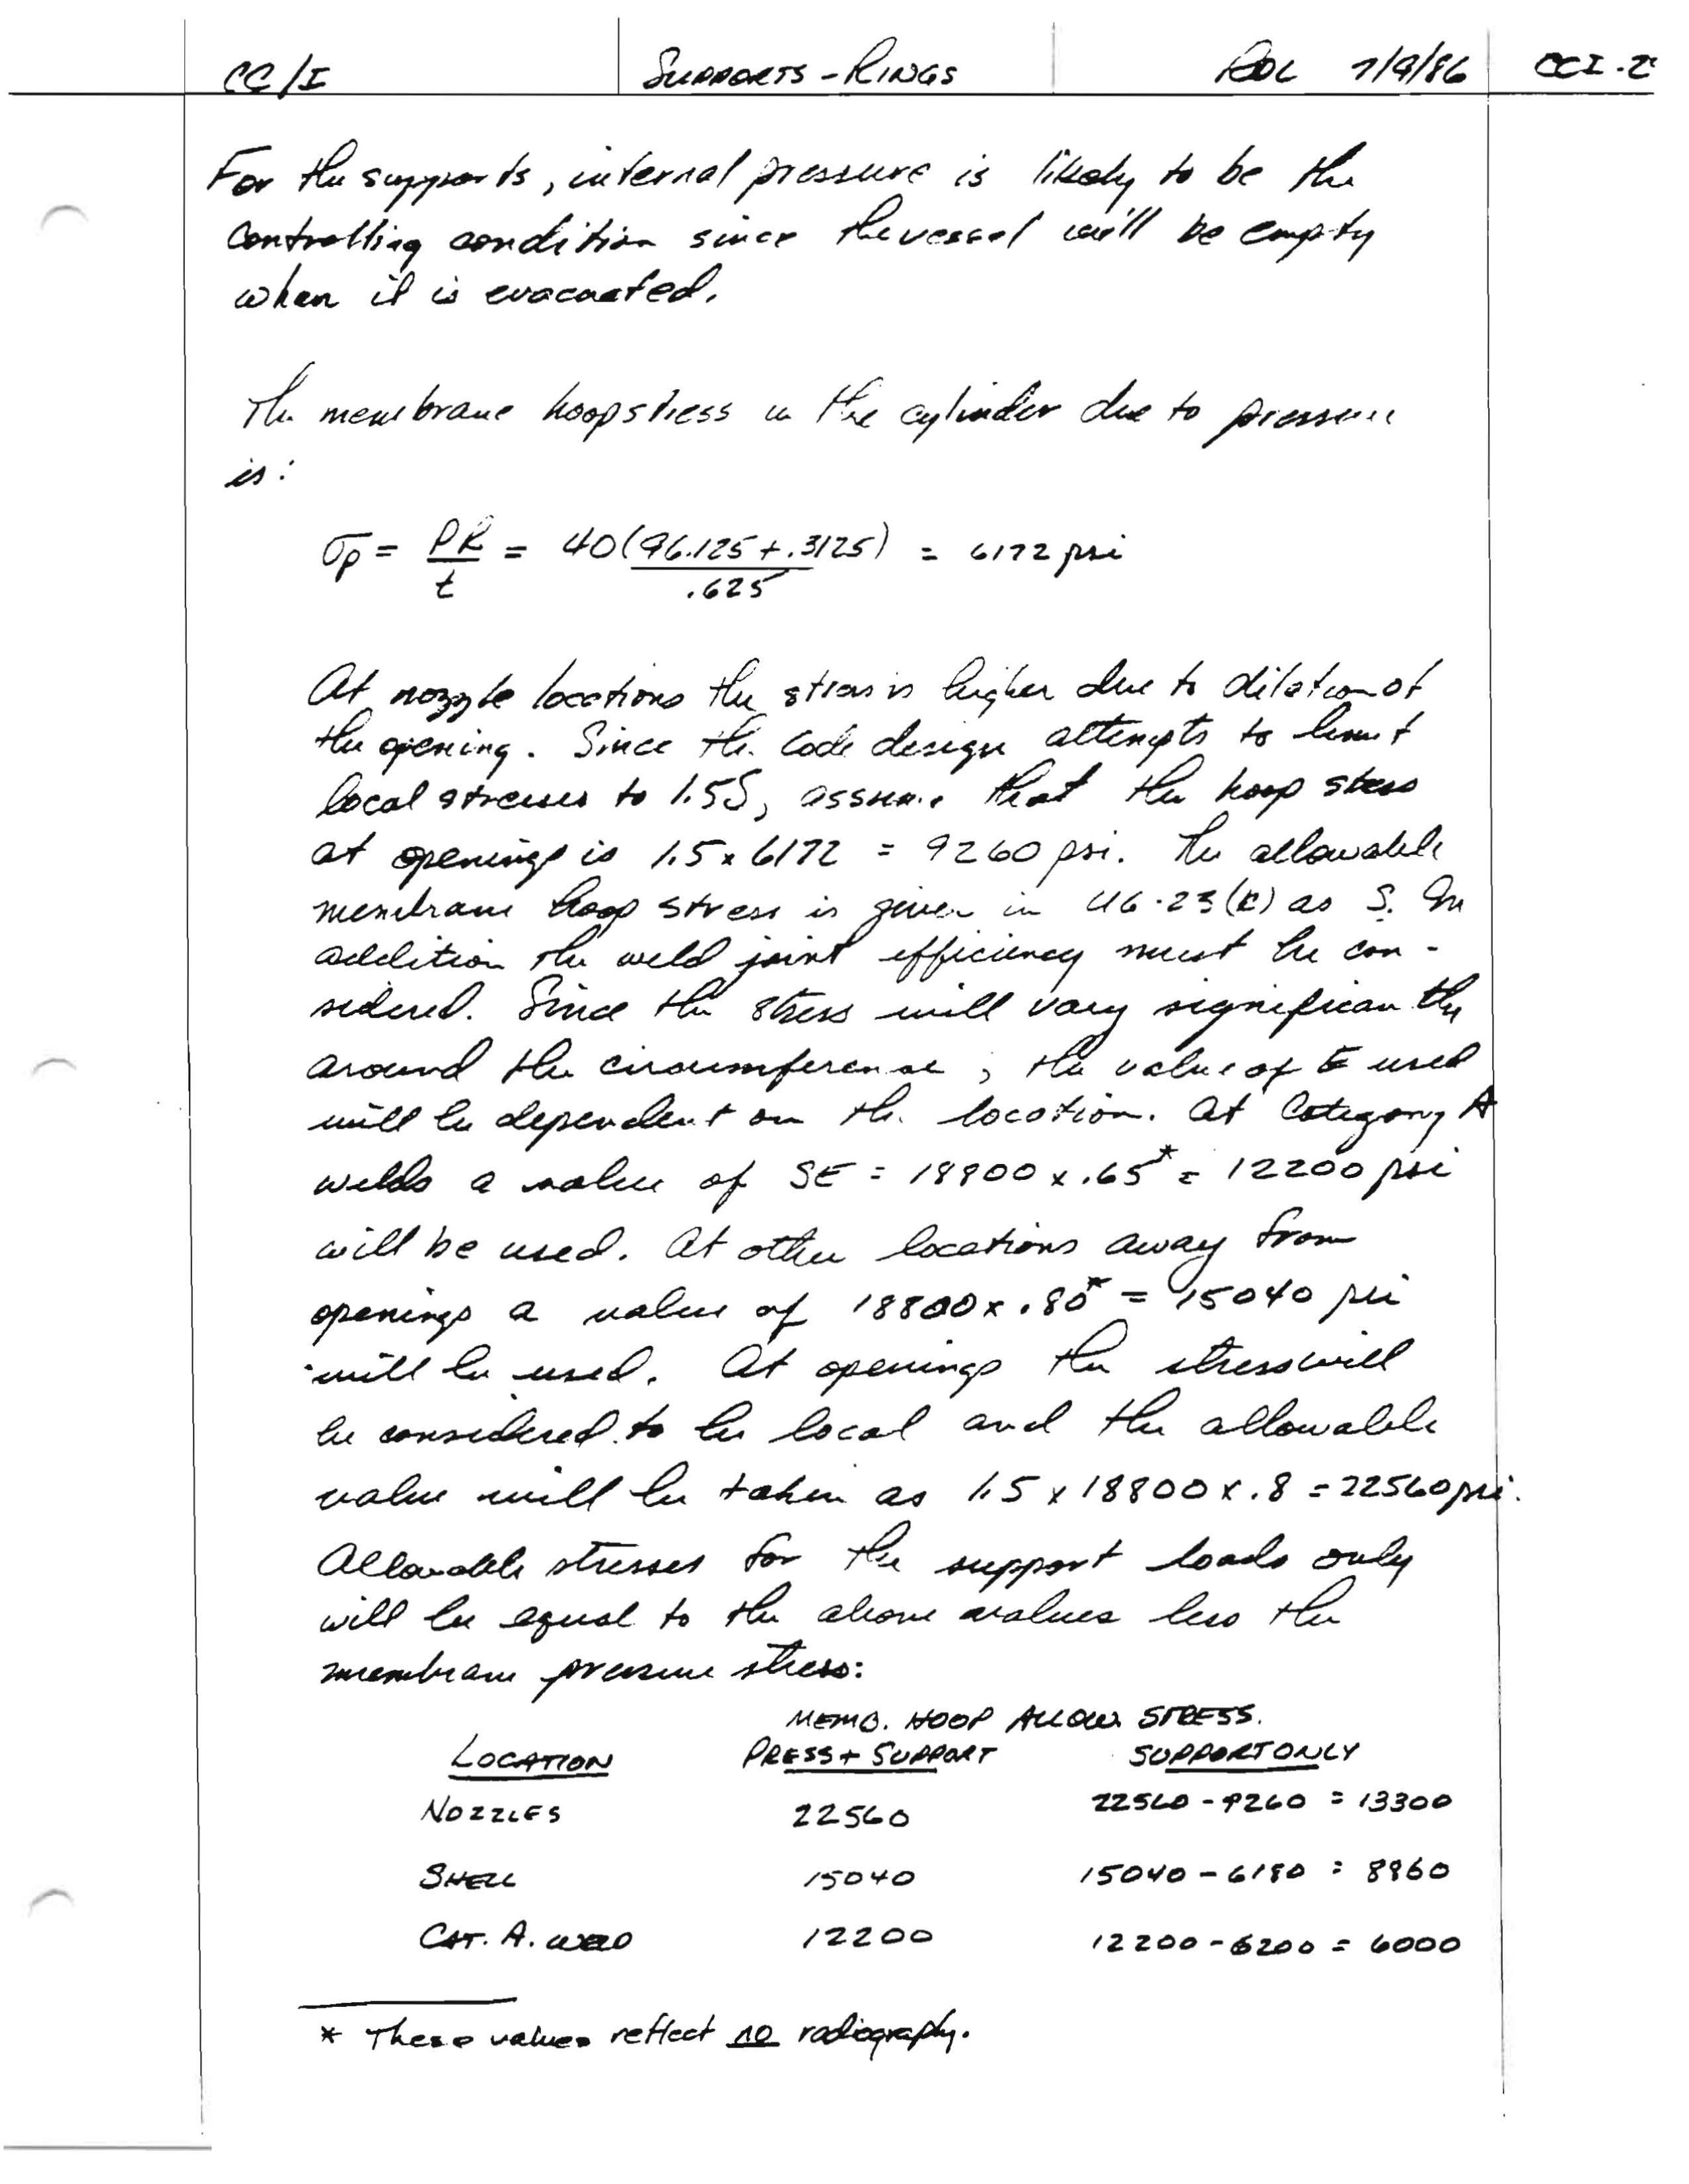 CC/I SUPPORTS - RINGS RDL 7/9/86 CCI-2
For the supports, internal pressure is likely to be the
controlling condition since the vessel will be empty
when it is evacuated.
The membrane hoop stress in the cylinder due to pressure
is:
σp = PR/t = 40(96.125 + .3125)/.625 = 6172 psi
At nozzle locations the stress is higher due to dilation of
the opening. Since the Code design attempts to limit
local stresses to 1.5S, assume that the hoop stress
at openings is 1.5 x 6172 = 9260 psi. The allowable
membrane hoop stress is given in UG-23(c) as S. In
addition the weld joint efficiency must be con-
sidered. Since the stress will vary significantly
around the circumference, the value of E used
will be dependent on the location. At Category A
welds a value of SE = 18800 x .65* = 12200 psi
will be used. At other locations away from
openings a value of 18800 x .80* = 15040 psi
will be used. At openings the stress will
be considered to be local and the allowable
value will be taken as 1.5 x 18800 x .8 = 22560 psi.
Allowable stresses for the support loads only
will be equal to the above values less the
membrane pressure stress:
MEMB. HOOP ALLOW. STRESS.
LOCATION PRESS + SUPPORT SUPPORT ONLY
NOZZLES 22560 22560 - 9260 = 13300
SHELL 15040 15040 - 6180 = 8860
CAT. A. WELD 12200 12200 - 6200 = 6000
* These values reflect no radiography.